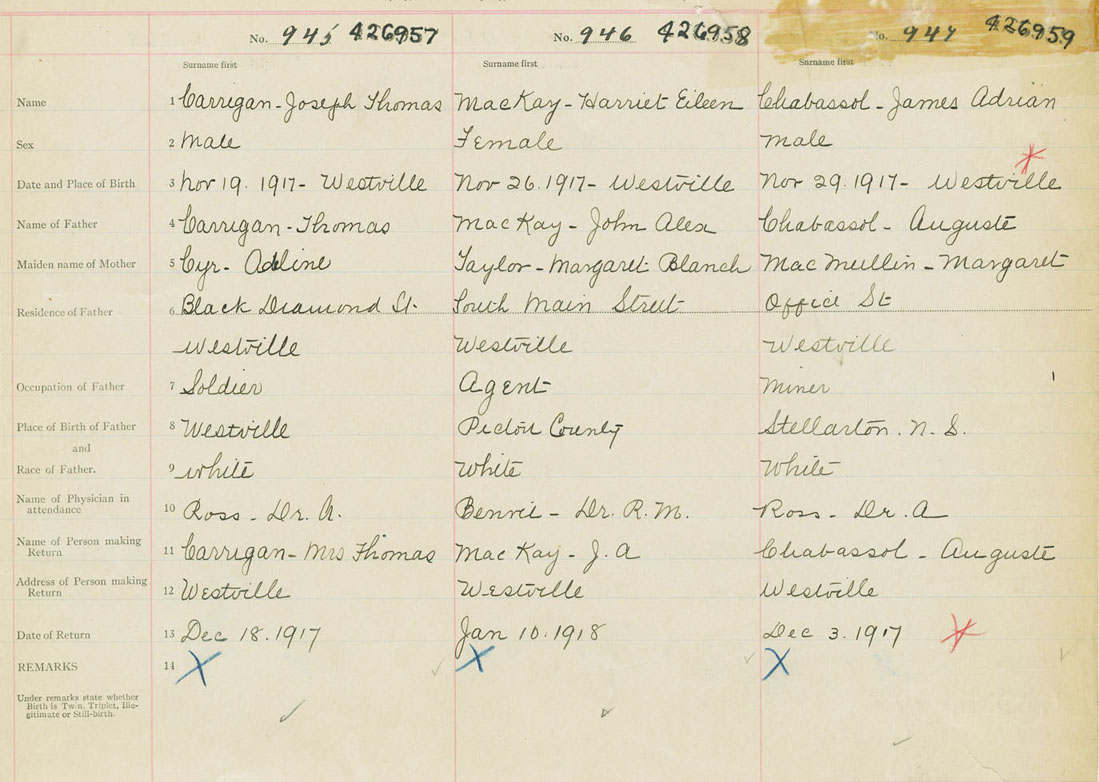 No. 945 426957 No. 946 426958 No. 947 426959
Surname first Surname first Surname first
Name 1 Carrigan-Joseph Thomas MacKay-Harriet Eileen Chabassol-James Adrian
Sex 2 Male Female male
Date and Place of Birth 3 Nov 19. 1917- Westville Nov 26. 1917- Westville Nov 29. 1917- Westville
Name of Father 4 Carrigan-Thomas MacKay-John Alex Chabassol- Auguste
Maiden name of Mother 5 Cyr- Adline Taylor-Margaret Blanch MacMullin-Margaret
Residence of Father 6 Black Diamond St. South Main Street Office St
Westville Westville Westville
Occupation of Father 7 Soldier Agent Miner
Place of Birth of Father 8 Westville Pictou County Stellarton. N. S.
and
Race of Father. 9 white White White
Name of Physician in attendance 10 Ross- Dr. A. Dr. R. M. Ross- Dr. A
Name of Person making Return 11 Carrigan-Mrs Thomas MacKay- J. A Chabassol- Auguste
Address of Person making Return 12 Westville Westville Westville
Date of Return 13 Dec 18. 1917 Jan 10. 1918 Dec 3. 1917
REMARKS 14 X X X
Under remarks state whether
Birth is Twin, Triplet, Ille-
gitimate or Still-birth.